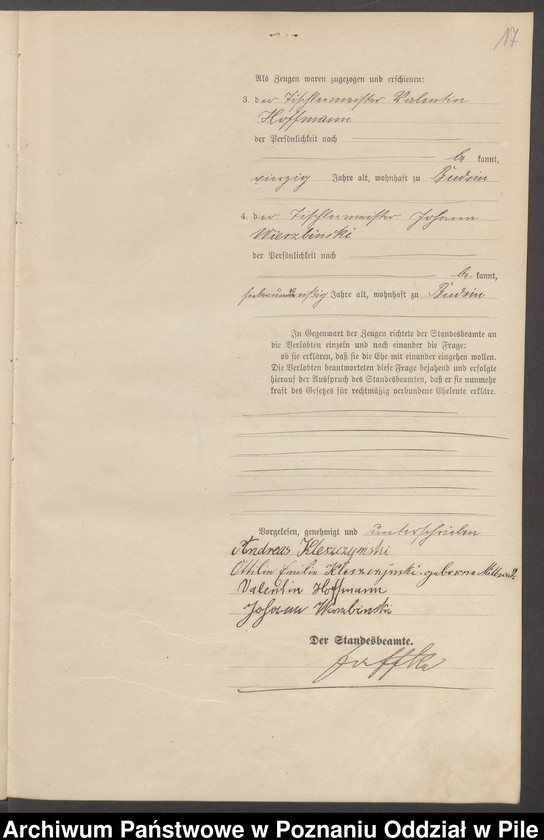 17
Als Zeugen waren zugezogen und erschienen:
3. der Tischlermeister Valentin
Hoffmann
der Persönlichkeit nach
be kannt,
vierzig Jahre alt, wohnhaft zu Budsin
4. der Tischlermeister Johann
Wierzbinski
der Persönlichkeit nach
be kannt,
siebenunddreißig Jahre alt, wohnhaft zu Budsin
In Gegenwart der Zeugen richtete der Standesbeamte an
die Verlobten einzeln und nach einander die Frage:
ob sie erklären, daß sie die Ehe mit einander eingehen wollen.
Die Verlobten beantworteten diese Frage bejahend und erfolgte
hierauf der Ausspruch des Standesbeamten, daß er sie nunmehr
kraft des Gesetzes für rechtmäßig verbundene Eheleute erkläre.
Vorgelesen, genehmigt und unterschrieben
Andreas Kleszczyński
Ottilie Emilie Kleszczyński, geborene
Valentin Hoffmann
Johann Wierzbinski
Der Standesbeamte.
Jaffke
Archiwum Państwowe w Poznaniu Oddział w Pile